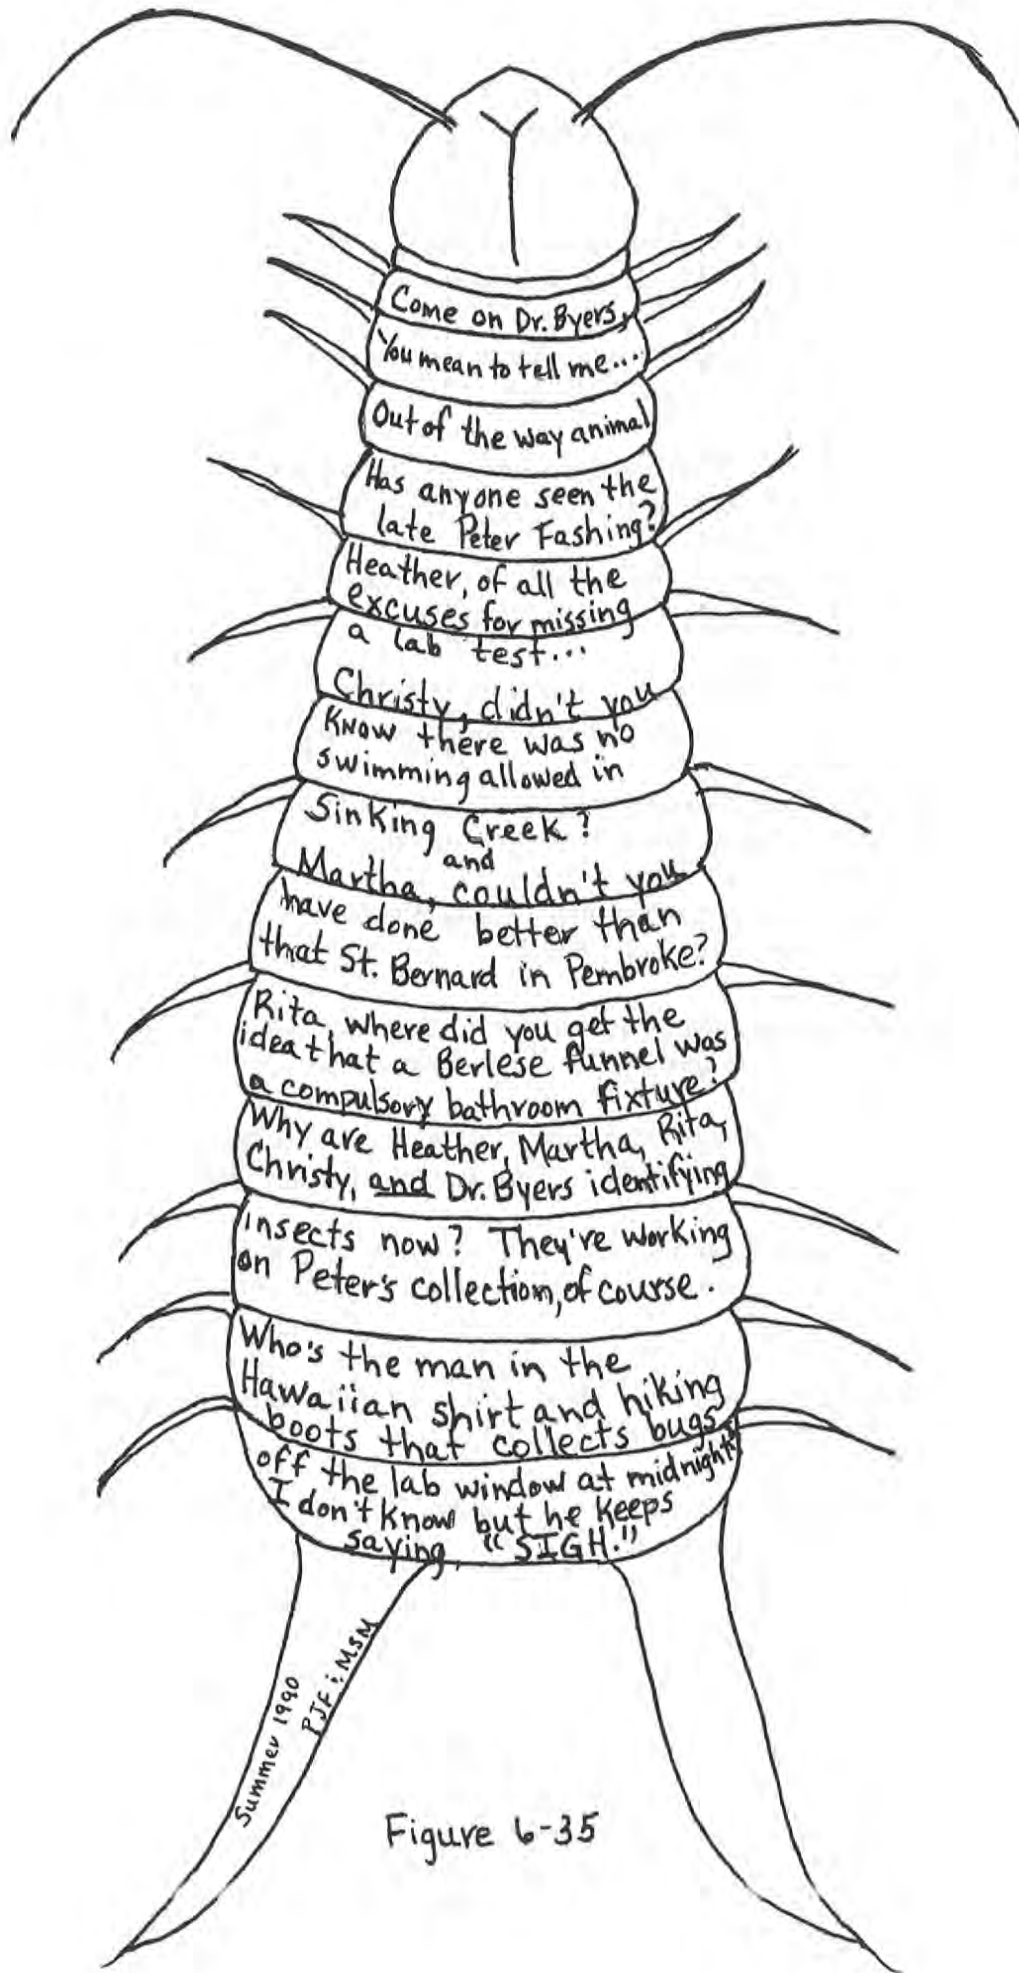 Come on Dr. Byers,
You mean to tell me...
Out of the way animal
Has anyone seen the
late Peter Fashing?
Heather, of all the
excuses for missing
a lab test...
Christy, didn't you
Know there was no
swimming allowed in
Sinking Creek?
and
Martha, couldn't you
have done better than
that St. Bernard in Pembroke?
Rita, where did you get the
idea that a Berlese funnel was
a compulsory bathroom fixture?
Why are Heather, Martha, Rita,
Christy, and Dr. Byers identifying
insects now? They're working
on Peter's collection, of course.
Who's the man in the
Hawaiian shirt and hiking
boots that collects bugs
off the lab window at midnight?
I don't know but he keeps
saying "SIGH."
Summer 1990
PJF & MSM
Figure 6-35